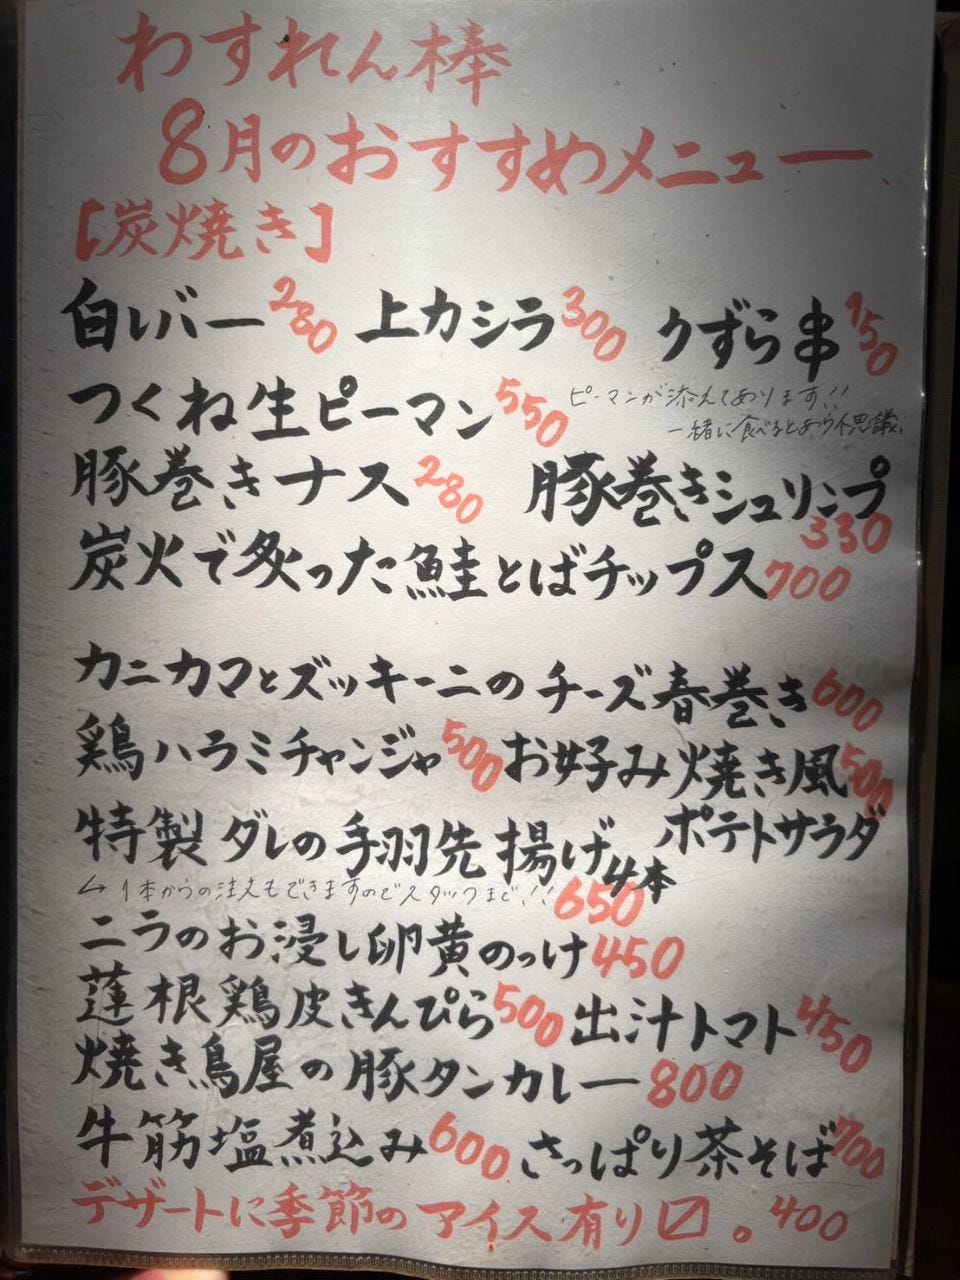 わすれん棒
8月のおすすめメニュー
【炭焼き】
白レバー280 上カシラ300 うずら串150
つくね生ピーマン550 ピーマンが添えてあります!!
一緒に食べるとあら不思議
豚巻きナス280 豚巻きシュリンプ330
炭火で炙った鮭とばチップス700
カニカマとズッキーニのチーズ春巻き600
鶏ハラミチャンジャ500 お好み焼き風ポテトサラダ500
特製ダレの手羽先揚げ4本650
↳ 1本からの注文もできますのでスタッフまで!!
ニラのお浸し卵黄のっけ450
蓮根鶏皮きんぴら500 出汁トマト450
焼き鳥屋の豚タンカレー800
牛筋塩煮込み600 さっぱり茶そば700
デザートに季節のアイス有り〼。400